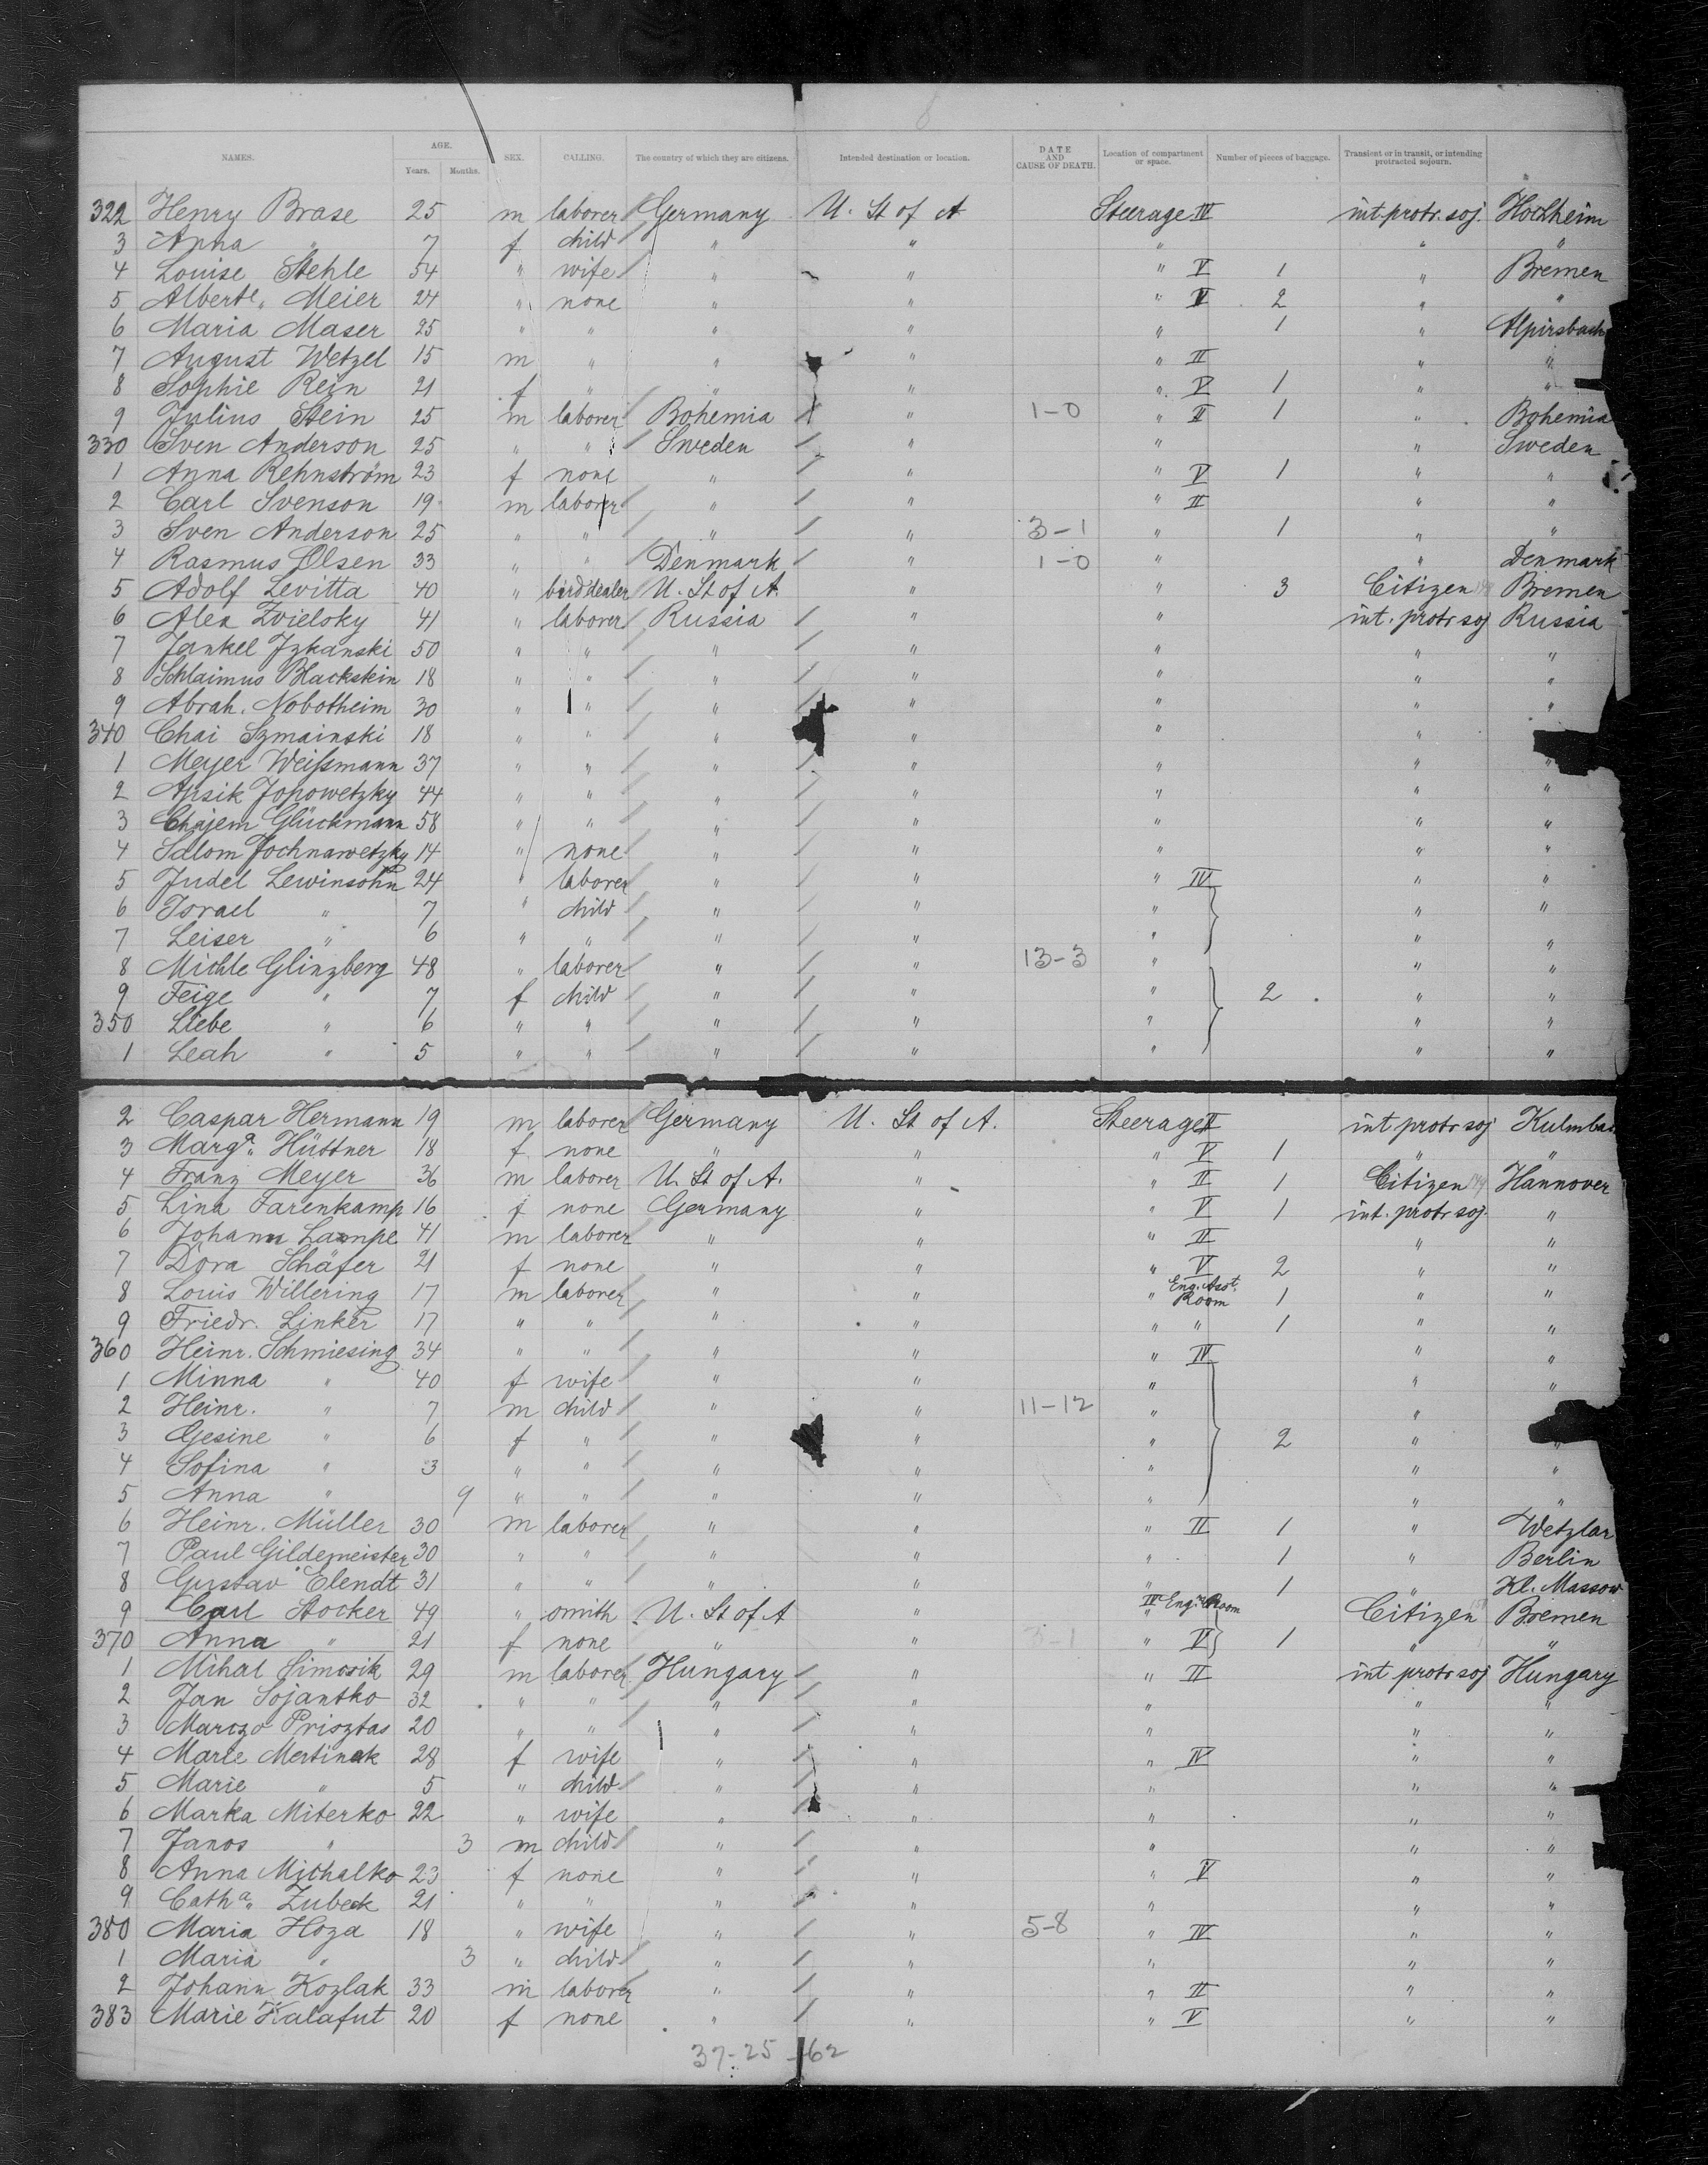 NAMES. AGE. Years. Months. SEX. CALLING. The country of which they are citizens. Intended destination or location. DATE AND CAUSE OF DEATH. Location of compartment or space. Number of pieces of baggage. Transient or in transit, or intending protracted sojourn.
322 Henry Brase 25 m laborer Germany U. St of A Steerage IV int. protr. soj. Holzheim
3 Anna " 7 f child " " " " "
4 Louise Stehle 54 " wife " " " V 1 " Bremen
5 Alberte. Meier 24 " none " " " V 2 " "
6 Maria Maser 25 " " " " " 1 " Alpirsbach
7 August Wetzel 15 m " " " " II " "
8 Sophie Rein 21 f " " " " V 1 " "
9 Julius Stein 25 m laborer Bohemia " 1-0 " II 1 " Bohemia
330 Sven Anderson 25 " " Sweden " " " Sweden
1 Anna Rehnström 23 f none " " " V 1 " "
2 Carl Svenson 19 m laborer " " " II " "
3 Sven Anderson 25 " " " " 3-1 " 1 " "
4 Rasmus Olsen 33 " " Denmark " 1-0 " " Denmark
5 Adolf Levitta 40 " birddealer U. St of A. " " 3 Citizen Bremen
6 Alea Zvieloky 41 " laborer Russia " " int. protr soj Russia
7 Jankel Jzkanski 50 " " " " " " "
8 Schlaimus Blackstein 18 " " " " " " "
9 Abrah. Nobotheim 30 " " " " " " "
340 Chai Szmainski 18 " " " " " "
1 Meyer Weißmann 37 " " " " " " "
2 Apsik Jopowetzky 44 " " " " " " "
3 Chajem Glückmann 58 " " " " " " "
4 Salom Jochnawetzky 14 " none " " " " "
5 Judel Lewinsohn 24 " laborer " " " IV " "
6 Israel " 7 " child " " " " "
7 Leiser " 6 " " " " " " "
8 Michle Glinzberg 48 " laborer " " 13-3 " " "
9 Feige " 7 f child " " " 2 " "
350 Liebe " 6 " " " " " " "
1 Leah " 5 " " " " " " "
2 Caspar Hermann 19 m laborer Germany U. St of A. Steerage II int protr soj
3 Marga. Hüttner 18 f none " " " V 1 " "
4 Franz Meyer 36 m laborer U. St of A. " " II 1 Citizen Hannover
5 Lina Farenkamp 16 f none Germany " " V 1 int. protr soj. "
6 Johann Lampe 41 m laborer " " " II " "
7 Dora Schäfer 21 f none " " " V 2 " "
8 Louis Willering 17 m laborer " " " Eng. Asst. Room 1 " "
9 Friedr. Linker 17 " " " " " " 1 " "
360 Heinr. Schmiesing 34 " " " " " IV " "
1 Minna " 40 f wife " " " " "
2 Heinr. " 7 m child " " 11-12 " "
3 Gesine " 6 f " " " " 2 " "
4 Sofina " 3 " " " " " " "
5 Anna " 9 " " " " " " "
6 Heinr. Müller 30 m laborer " " " II 1 " Wetzlar
7 Paul Gildemeister 30 " " " " " 1 " Berlin
8 Gustav Elendt 31 " " " " " 1 " Kl. Massow
9 Carl Stocker 49 " smith U. St of A " " IV Engr Room Citizen Bremen
370 Anna " 21 f none " " " V 1 " "
1 Mihal Simcsik 29 m laborer Hungary " " II int protr soj Hungary
2 Jan Sojantko 32 " " " " " " "
3 Marczo Prisztas 20 " " " " " " "
4 Marie Mertinak 28 f wife " " " IV " "
5 Marie " 5 " child " " " " "
6 Marka Miterko 22 " wife " " " " "
7 Janos " 3 m child " " " " "
8 Anna Michalko 23 f none " " " V " "
9 Catha. Zubeck 21 " " " " " " "
380 Maria Hoza 18 " wife " " 5-8 " IV " "
1 Maria " 3 " child " " " " "
2 Johann Kozlak 33 m laborer " " " II " "
383 Marie Kalafut 20 f none " " " V " "
37-25-62